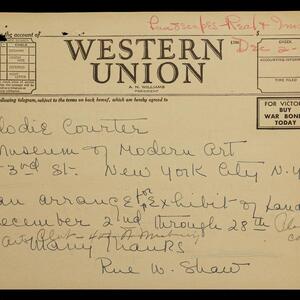 Landscapes Real &
the account of
WESTERN
Dec 2
UNION
CHECK
ACCOUNTING INFORMATION
TIME FILED
A. N. WILLIAMS
PRESIDENT
following telegram, subject to the terms on back hereof, which are hereby agreed to
FOR VICTORY
BUY
WAR BONDS
TODAY
lodie Courter
Museum of Modern Art
3rd St. New York City N.Y
an arrange for exhibit of Land
December 2nd through 28th
Many Thanks
Rue W. Shaw